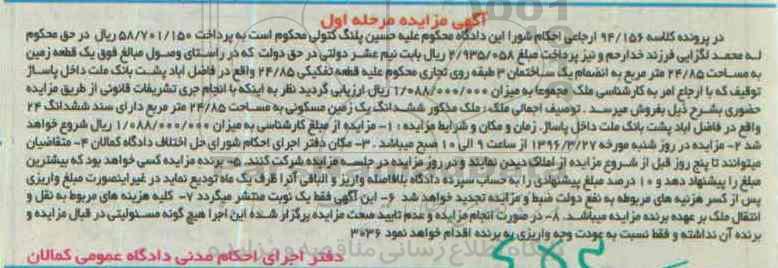 آگهی مزایده مرحله اول
در پرونده کلاسه ۹۴/۱۵۶ ارجاعی احکام شورا این دادگاه محکوم علیه حسین پلنگ کتولی محکوم است به پرداخت ۵۸/۷۰۱/۱۵۰ ریال در حق محکوم
له محمد لگزایی فرزند خدارحم و نیز پرداخت مبلغ ۲/۹۳۵/۰۵۸ ریال بابت نیم عشر دولتی در حق دولت که در راستای وصول مبالغ فوق یک قطعه زمین
به مساحت ۲۴/۸۵ متر مربع به انضمام یک ساختمان ۳ طبقه روی تجاری محکوم علیه قطعه تفکیکی ۲۴/۸۵ واقع در فاضل آباد پشت بانک ملت داخل پاساژ
توقیف که با ارجاع امر به کارشناسی ملک مجموعا به میزان ۱/۰۸۸/۰۰۰/۰۰۰ ریال ارزیابی گردید نظر به اینکه با انجام جری تشریفات قانونی از طریق مزایده
حضوری بشرح ذیل بفروش میرسد . توصیف اجمالی ملک : ملک مذکور ششدانگ یک زمین مسکونی به مساحت ۲۴/۸۵ متر مربع دارای سند ششدانگ ۲۴
واقع در فاضل آباد پشت بانک ملت داخل پاساژ. زمان و مکان و شرایط مزایده : ۱- مزایده از مبلغ کارشناسی به میزان ۱/۰۸۸/۰۰۰/۰۰۰ ریال شروع خواهد
شد ۲- مزایده در روز شنبه مورخه ۱۳۹۶/۳/۲۷ از ساعت ۹ الی ۱۰ صبح میباشد . ۳- مکان دفتر اجرای احکام شورای حل اختلاف دادگاه کمالان ۴- متقاضیان
میتوانند تا پنج روز قبل از شروع مزایده از املاک دیدن نمایند و در روز مزایده در جلسه مزایده شرکت کنند. ۵- برنده مزایده کسی خواهد بود که بیشترین
مبلغ را پیشنهاد دهد و ۱۰ درصد مبلغ پیشنهادی را به حساب سپرده دادگاه بلافاصله واریز و الباقی آنرا ظرف یک ماه تودیع نماید در غیر اینصورت مبلغ واریزی
پس از کسر هزینه های مربوطه به نفع دولت ضبط و مزایده تجدید خواهد شد ۶- این آگهی فقط یک نوبت منتشر میگردد ۷- کلیه هزینه های مربوط به نقل و
انتقال ملک بر عهده برنده مزایده میباشد. ۸- در صورت انجام مزایده و عدم تایید صحت مزایده برگزار شده این اجرا هیچ گونه مسئولیتی در قبال مزایده و
برنده آن نداشته و فقط نسبت به عودت وجه واریزی به برنده اقدام خواهد نمود ۳۰۳۶
دفتر اجرای احکام مدنی دادگاه عمومی کمالان